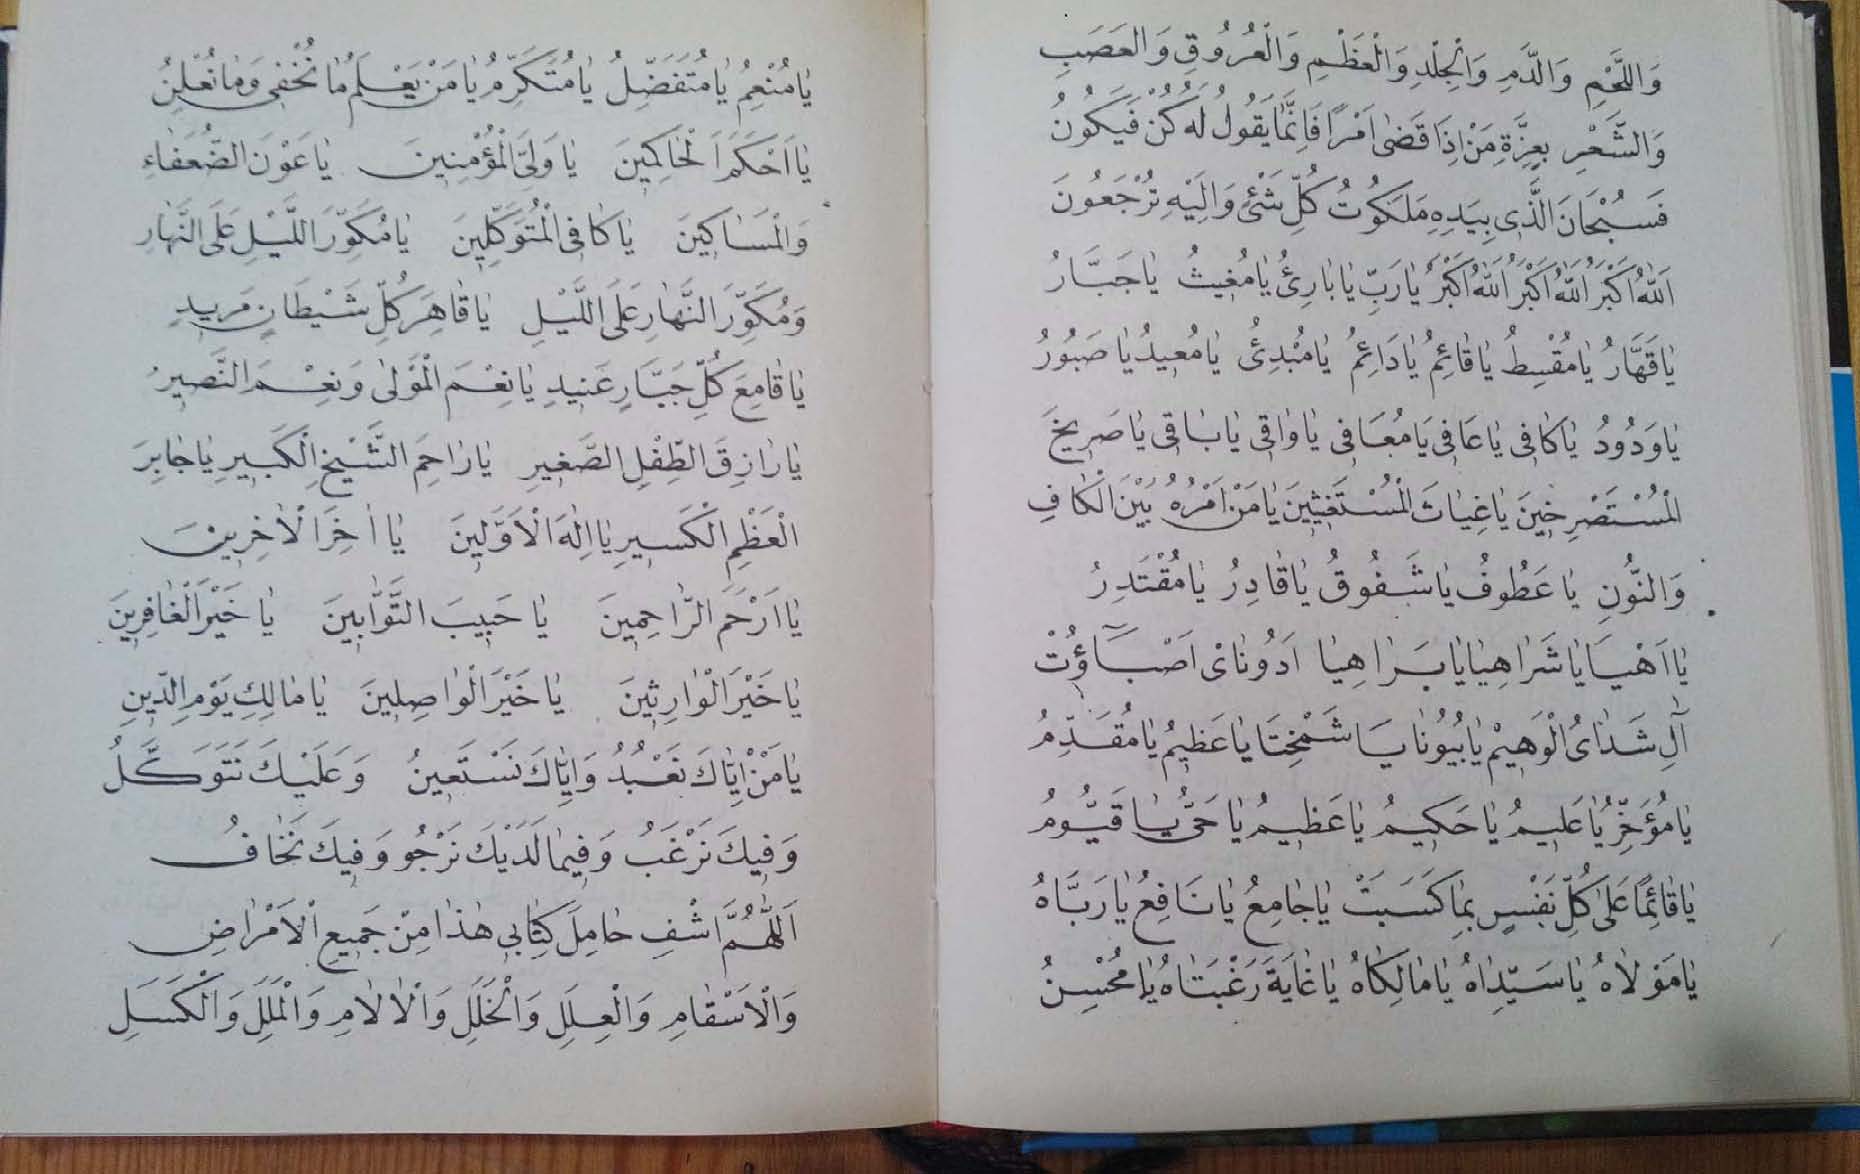 وَاللَّحْمِ وَالدَّمِ وَالْجِلْدِ وَالْعَظْمِ وَالْعُرُوقِ وَالعَصَبِ
وَالشَّعْرِ بِعِزَّةِ مَنْ اِذَا قَضٰى اَمْرًا فَاِنَّمَا يَقُولُ لَهُ كُنْ فَيَكُونُ
فَسُبْحَانَ الَّذِى بِيَدِهِ مَلَكُوتُ كُلِّ شَيْئٍ وَاِلَيْهِ تُرْجَعُونَ
اَللّٰهُ اَكْبَرُ اَللّٰهُ اَكْبَرُ اَللّٰهُ اَكْبَرُ يَا رَبِّ يَا بَارِئُ يَا مُغِيثُ يَا جَبَّارُ
يَا قَهَّارُ يَا مُقْسِطُ يَا قَائِمُ يَا دَائِمُ يَا مُبْدِئُ يَا مُعِيدُ يَا صَبُورُ
يَا وَدُودُ يَا كَافِى يَا عَافِى يَا مُعَافِى يَا وَاقِى يَا بَاقِى يَا صَرِيخَ
الْمُسْتَصْرِخِينَ يَا غِيَاثَ الْمُسْتَغِيثِينَ يَا مَنْ اَمْرُهُ بَيْنَ الْكَافِ
وَالنُّونِ يَا عَطُوفُ يَا شَفُوقُ يَا قَادِرُ يَا مُقْتَدِرُ
يَا اَهْيَا يَا شَرَاهِيَا يَا بَرَاهِيَا اَدُونَاىْ اَصْبَآؤُتْ
آلِ شَدَاىُ الْوَهِيمْ يَا بُيُونَا يَا شَمْخِتَا يَا عَظِيمُ يَا مُقَدِّمُ
يَا مُؤَخِّرُ يَا عَلِيمُ يَا حَكِيمُ يَا عَظِيمُ يَا حَىُّ يَا قَيُّومُ
يَا قَائِمًا عَلٰى كُلِّ نَفْسٍ بِمَا كَسَبَتْ يَا جَامِعُ يَا نَافِعُ يَا رَبَّاهُ
يَا مَوْلَاهُ يَا سَيِّدَاهُ يَا مَالِكَاهُ يَا غَايَةَ رَغْبَتَاهُ يَا مُحْسِنُ
يَا مُنْعِمُ يَا مُتَفَضِّلُ يَا مُتَكَرِّمُ يَا مَنْ يَعْلَمُ مَا نُخْفِى وَمَا نُعْلِنُ
يَا اَحْكَمَ الْحَاكِمِينَ يَا وَلِىَّ الْمُؤْمِنِينَ يَا عَوْنَ الضُّعَفَاءِ
وَالْمَسَاكِينَ يَا كَافِىَ الْمُتَوَكِّلِينَ يَا مُكَوِّرَ اللَّيْلِ عَلَى النَّهَارِ
وَمُكَوِّرَ النَّهَارِ عَلَى اللَّيْلِ يَا قَاهِرَ كُلِّ شَيْطَانٍ مَرِيدٍ
يَا قَامِعَ كُلِّ جَبَّارٍ عَنِيدٍ يَا نِعْمَ الْمَوْلٰى وَنِعْمَ النَّصِيرُ
يَا رَازِقَ الطِّفْلِ الصَّغِيرِ يَا رَاحِمَ الشَّيْخِ الْكَبِيرِ يَا جَابِرَ
الْعَظْمِ الْكَسِيرِ يَا اِلٰهَ الْاَوَّلِينَ يَا اٰخِرَ الْاٰخِرِينَ
يَا اَرْحَمَ الرَّاحِمِينَ يَا حَبِيبَ التَّوَّابِينَ يَا خَيْرَ الْغَافِرِينَ
يَا خَيْرَ الْوَارِثِينَ يَا خَيْرَ الْوَاصِلِينَ يَا مَالِكِ يَوْمِ الدِّينِ
يَا مَنْ اِيَّاكَ نَعْبُدُ وَاِيَّاكَ نَسْتَعِينُ وَعَلَيْكَ نَتَوَكَّلُ
وَفِيكَ نَرْغَبُ وَفِيمَا لَدَيْكَ نَرْجُو وَفِيكَ نَخَافُ
اَللّٰهُمَّ اشْفِ حَامِلَ كِتَابِى هٰذَا مِنْ جَمِيعِ الْاَمْرَاضِ
وَالْاَسْقَامِ وَالْعِلَلِ وَالْخَلَلِ وَالْاٰلَامِ وَالْمَلَلِ وَالْكَسَلِ